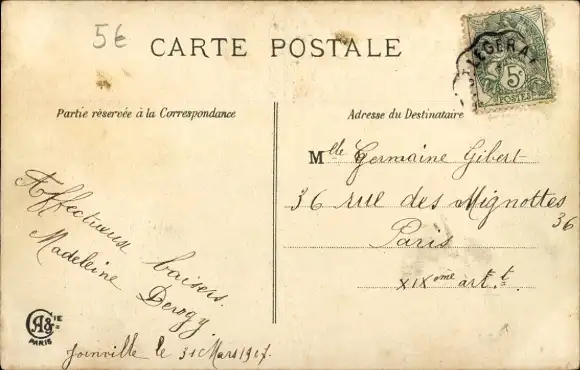 5€
CARTE POSTALE
Partie réservée à la Correspondance
Adresse du Destinataire
5c
POSTES
Mlle Germaine Gibert
36 rue des Mignottes
36
Paris
XIXème arr.t
Affectueux baisers.
Madeleine Derogy
IE
PARIS
Joinville le 31 Mars 1907.